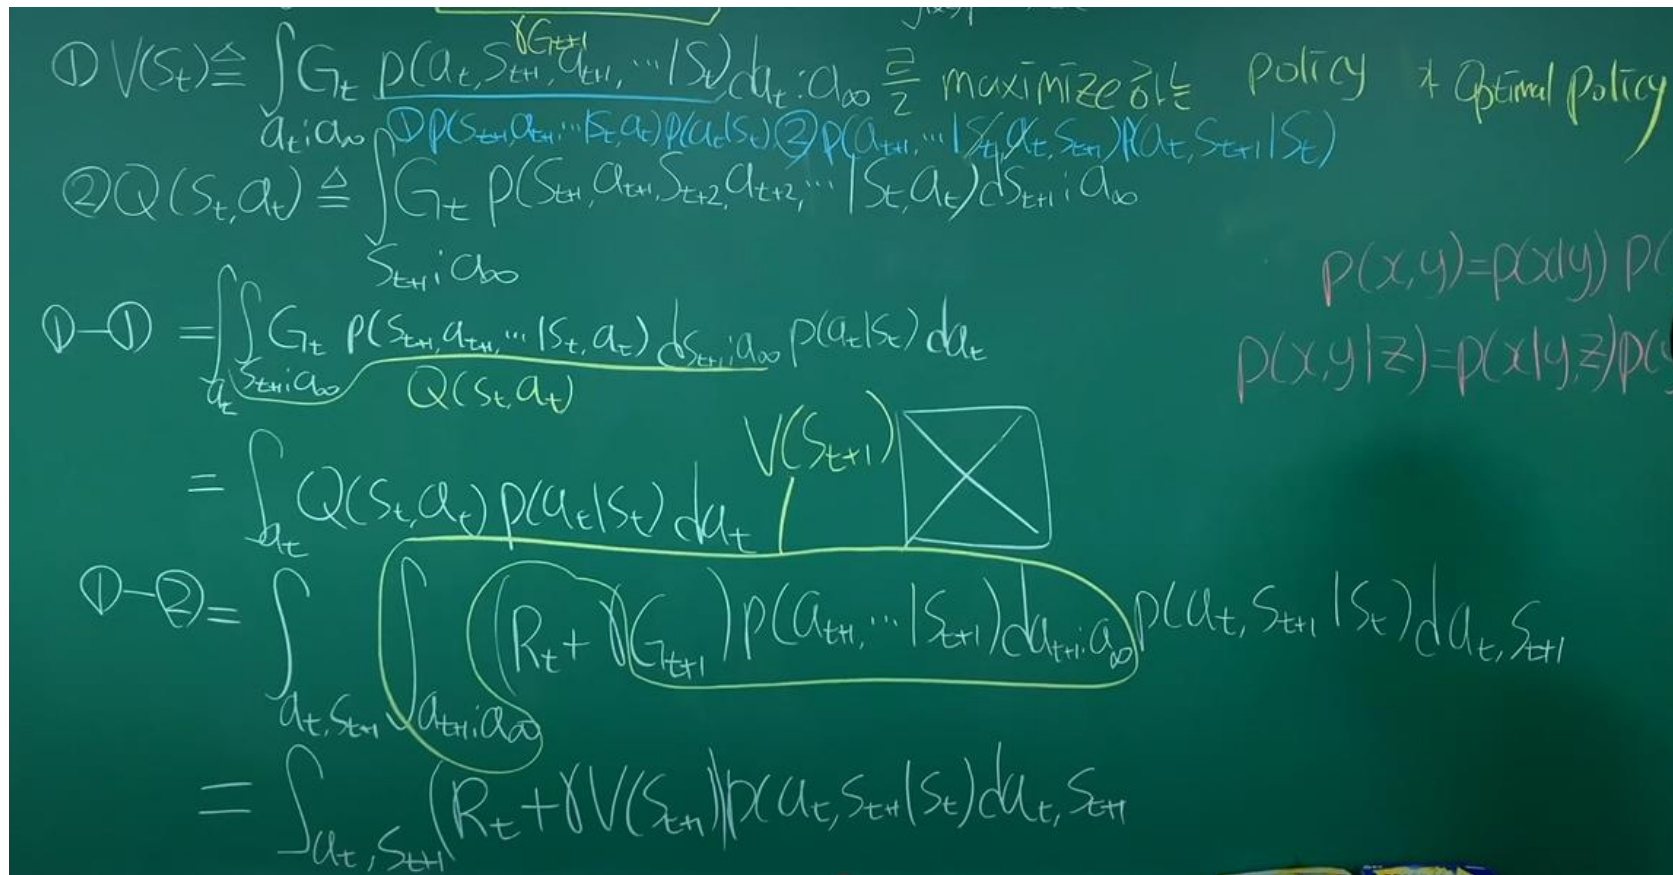 γG_{t+1}
① V(S_t) ≜ ∫_{a_t:a_∞} G_t p(a_t, S_{t+1}, a_{t+1}, ... | S_t) da_t:a_∞ 를 maximize 하는 policy * Optimal policy
① p(S_{t+1}, a_{t+1}, ... | S_t, a_t) p(a_t | S_t) ② p(a_{t+1}, ... | S_t, a_t, S_{t+1}) p(a_t, S_{t+1} | S_t)
② Q(S_t, a_t) ≜ ∫_{S_{t+1}:a_∞} G_t p(S_{t+1}, a_{t+1}, S_{t+2}, a_{t+2}, ... | S_t, a_t) dS_{t+1}:a_∞
p(x,y)=p(x|y) p(
①-① = ∫_{a_t} ∫_{S_{t+1}:a_∞} G_t p(S_{t+1}, a_{t+1}, ... | S_t, a_t) dS_{t+1}:a_∞ p(a_t | S_t) da_t
p(x,y|z)=p(x|y,z)p(y
Q(S_t, a_t)
V(S_{t+1})
= ∫_{a_t} Q(S_t, a_t) p(a_t | S_t) da_t
①-② = ∫_{a_t, S_{t+1}} ∫_{a_{t+1}:a_∞} (R_t + γG_{t+1}) p(a_{t+1}, ... | S_{t+1}) da_{t+1}:a_∞ p(a_t, S_{t+1} | S_t) da_t, S_{t+1}
= ∫_{a_t, S_{t+1}} (R_t + γV(S_{t+1})) p(a_t, S_{t+1} | S_t) da_t, S_{t+1}